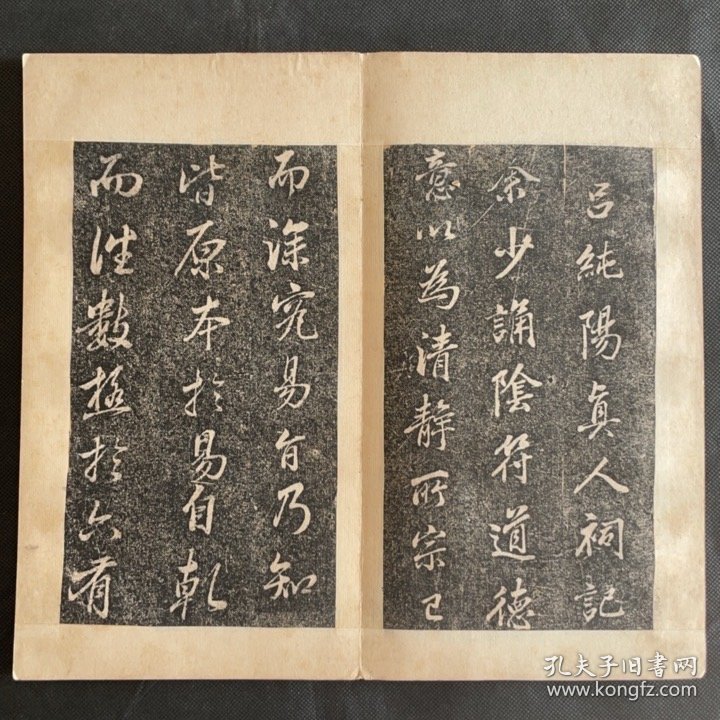 呂純陽真人祠記
余少誦陰符道德
意以為清靜所宗已
而深究易旨乃知
皆原本於易自乾
而性數極於六有
孔夫子旧書网
www.kongfz.com